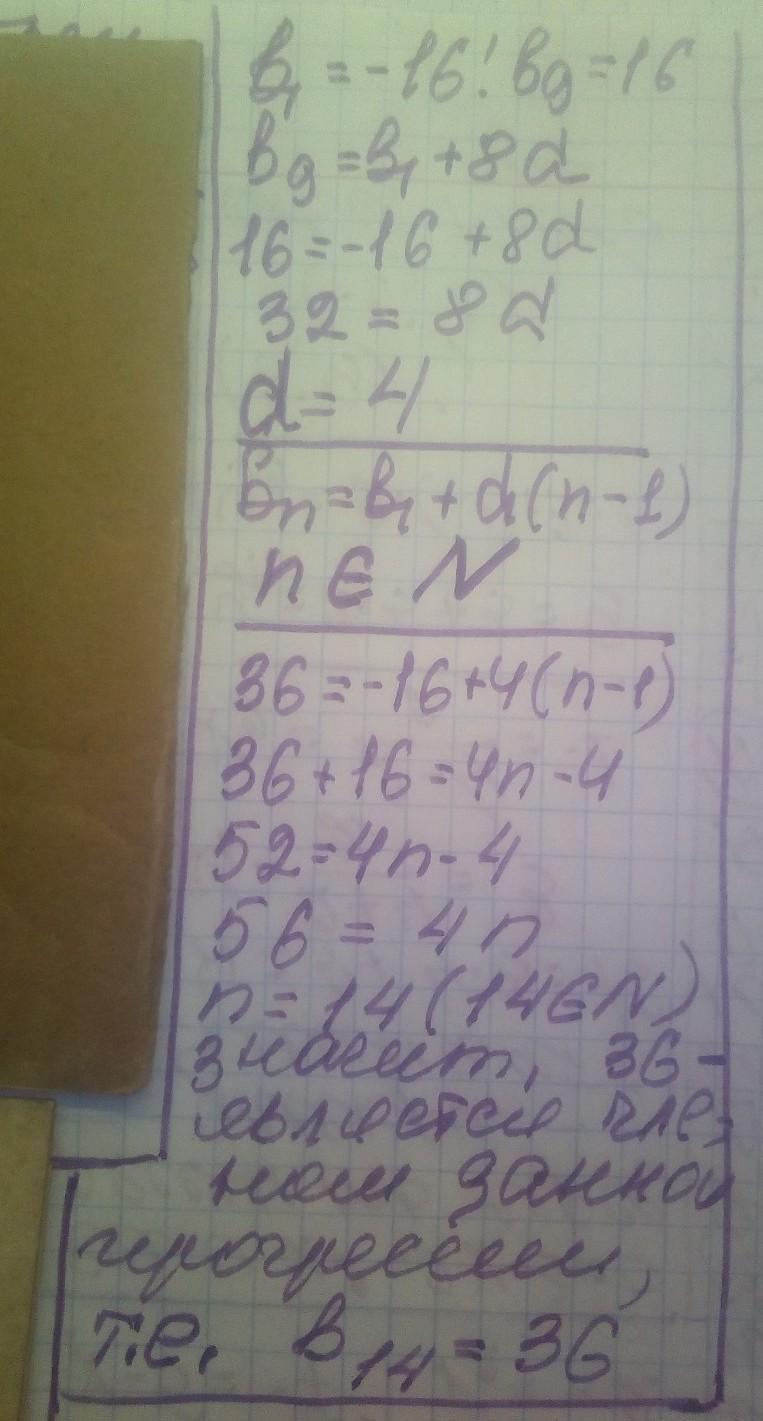 b₁ = -16; b₉ = 16
b₉ = b₁ + 8d
16 = -16 + 8d
32 = 8d
d = 4
bₙ = b₁ + d(n-1)
n ∈ N
36 = -16 + 4(n-1)
36 + 16 = 4n - 4
52 = 4n - 4
56 = 4n
n = 14 (14 ∈ N)
значит, 36 -
является чле-
ном данной
прогрессии,
т.е. b₁₄ = 36